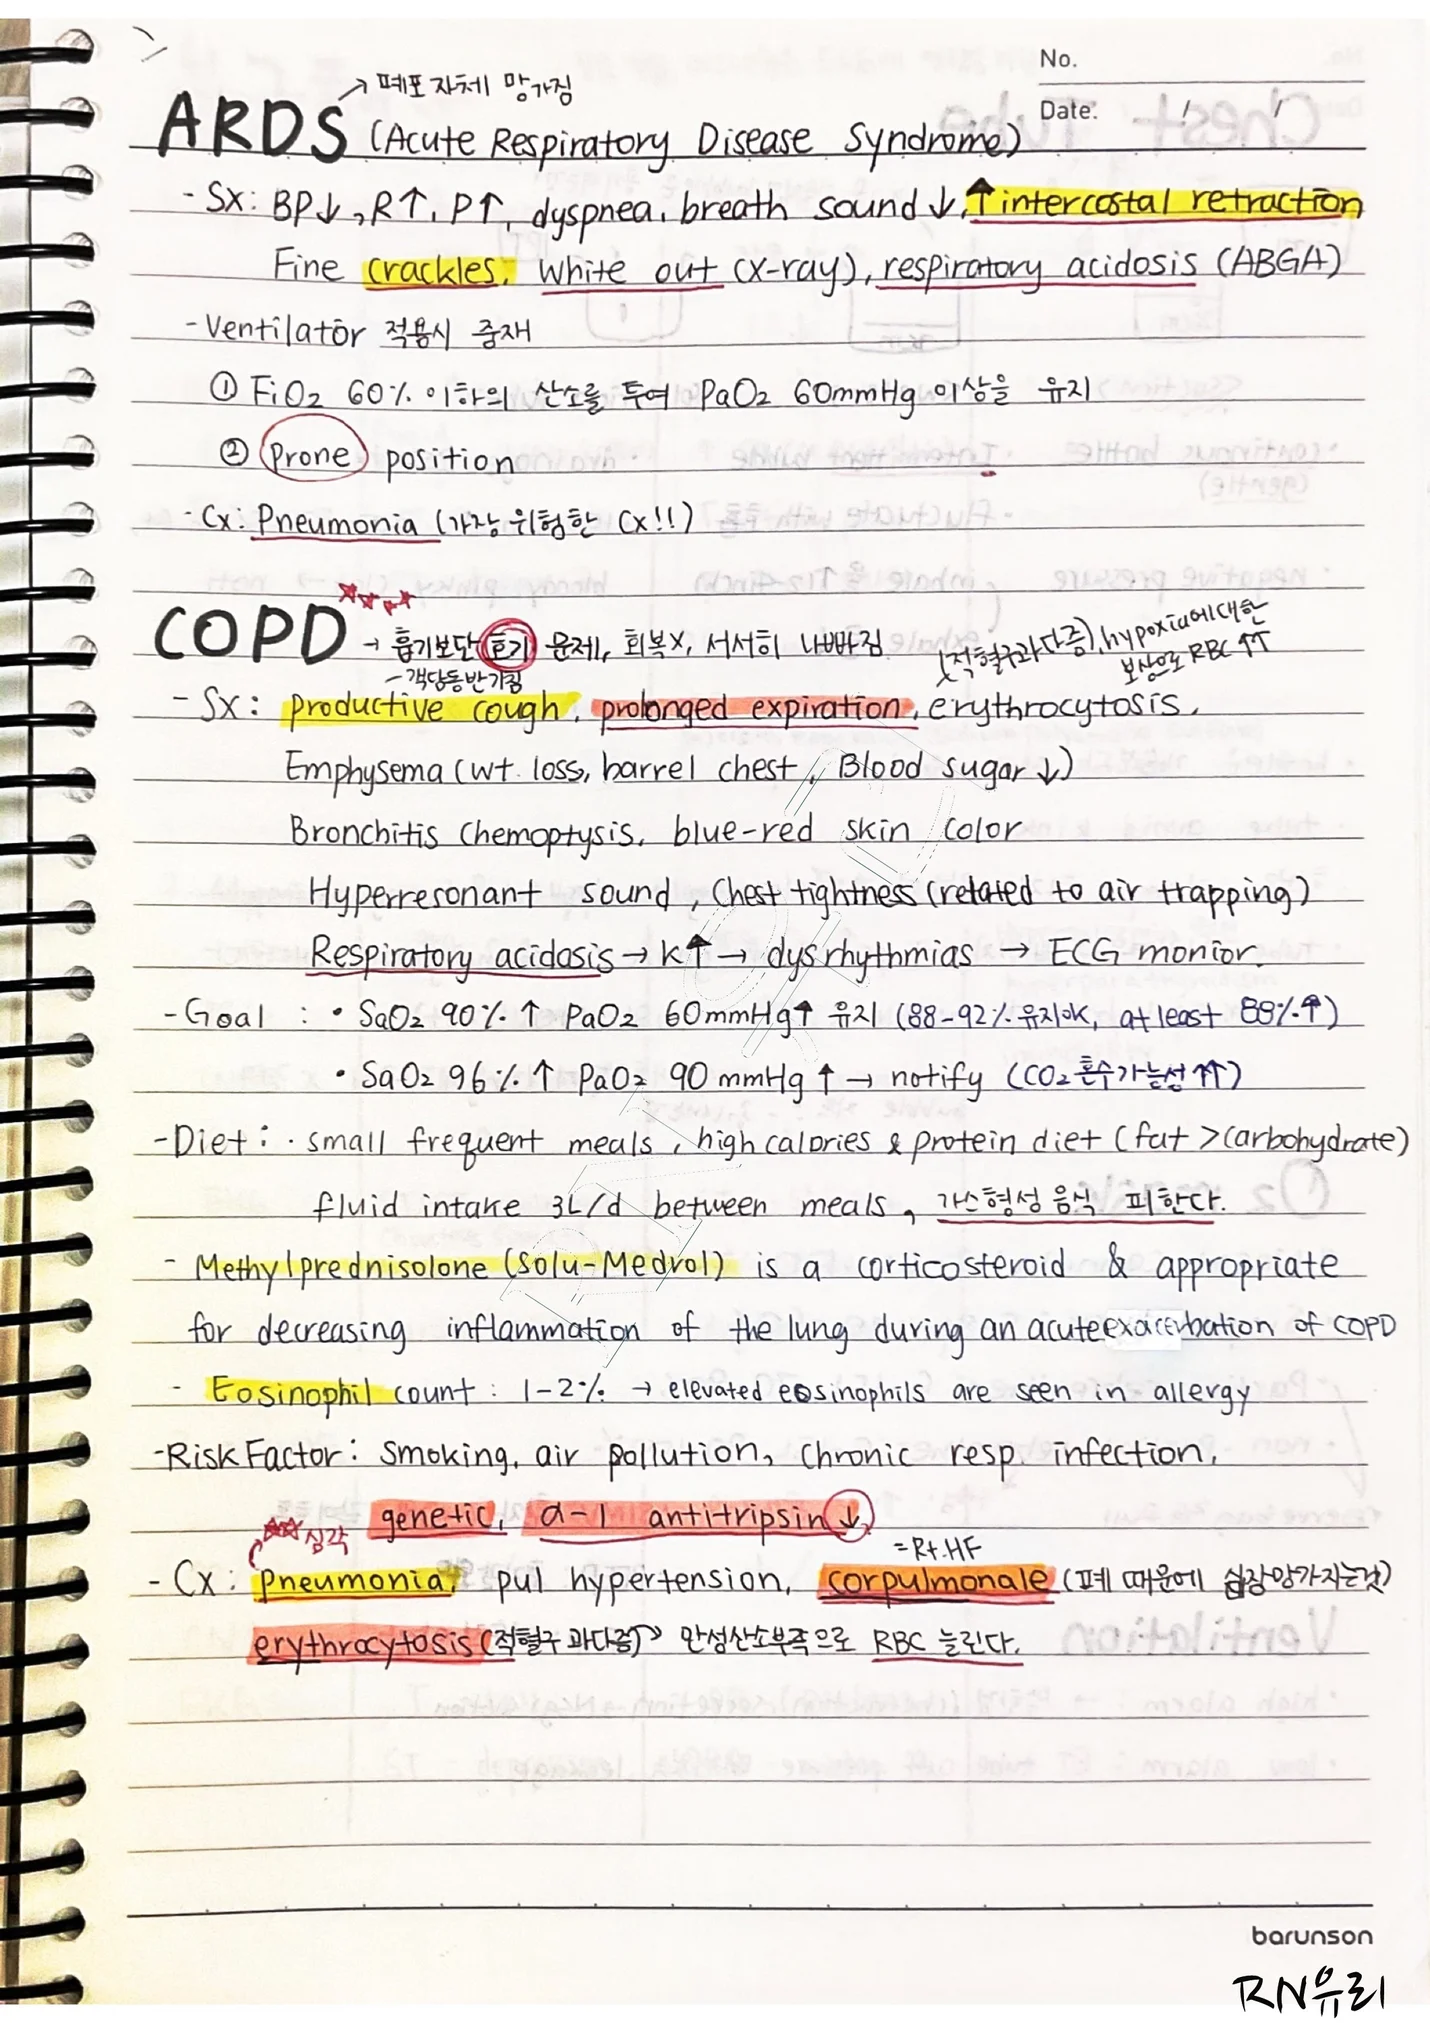 No.
Date: / /
→ 폐포 자체 망가짐
ARDS (Acute Respiratory Disease Syndrome)
- Sx: BP↓, R↑, P↑, dyspnea, breath sound ↓, ↑intercostal retraction
Fine crackles, white out (x-ray), respiratory acidosis (ABGA)
- Ventilator 적용시 중재
① FiO2 60% 이하의 산소를 투여 PaO2 60mmHg 이상을 유지
② prone position
- Cx: Pneumonia (가장 위험한 Cx!!)
COPD → 흡기보단 호기 문제, 회복x, 서서히 나빠짐
(적혈구과다증), hypoxia에대한
보상으로 RBC ↑↑
- 객담동반기침
- Sx: productive cough, prolonged expiration, erythrocytosis,
Emphysema (wt. loss, barrel chest, Blood sugar ↓)
Bronchitis Chemoptysis, blue-red skin color
Hyperresonant sound, chest tightness (related to air trapping)
Respiratory acidosis → K↑ → dysrhythmias → ECG monior.
- Goal : • SaO2 90% ↑ PaO2 60mmHg↑ 유지 (88-92% 유지ok, at least 88%↑)
• SaO2 96% ↑ PaO2 90 mmHg ↑ → notify (CO2 혼수가능성 ↑↑)
- Diet : · small frequent meals, high calories & protein diet (fat > carbohydrate)
fluid intake 3L/d between meals, 가스형성 음식 피한다.
- Methylprednisolone (Solu-Medrol) is a corticosteroid & appropriate
for decreasing inflammation of the lung during an acute exacerbation of COPD
- Eosinophil count : 1-2% → elevated eosinophils are seen in allergy
- Risk Factor : smoking, air pollution, chronic resp. infection,
genetic, α-1 antitripsin ↓
심각
=Rt.HF
- Cx : pneumonia, pul hypertension, corpulmonale (폐 때문에 심장망가지는것)
erythrocytosis (적혈구 과다증) → 만성산소부족으로 RBC 늘린다.
barunson
RN유리